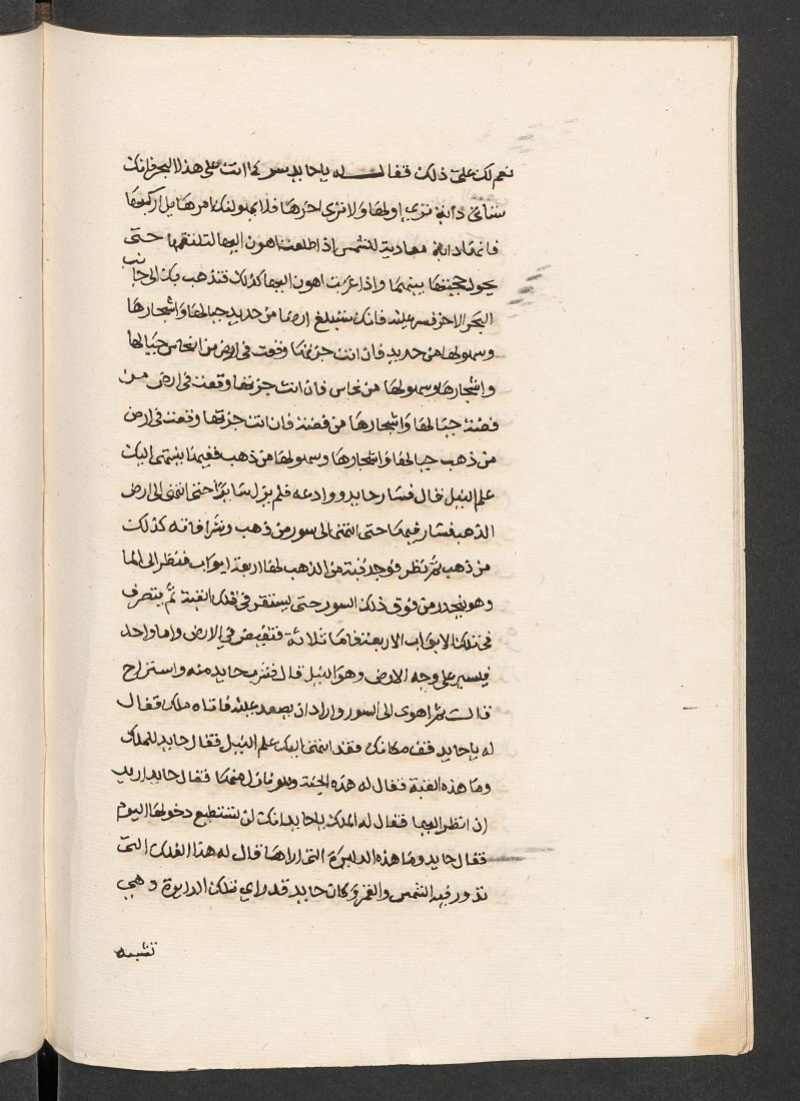 نعم لك على ذلك فقال له يا حايد سر كما انت على هذا البحر فانك
ستاتي دابة ترى اولها ولا ترى اخرها فلا يهولنك امرها بل اركبها
فانها دابة معادية للشمس اذا طلعت اهوت اليها لتلتقمها حتى
يحول حجبتها بينهما واذا غربت اهوت اليها كذلك فتذهب بك الى جانب
البحر الاخر فسر عليه فانك ستبلغ ارضا من حديد جبالها واشجارها
وسهولها من حديد فان انت جزتها وقعت في ارض من النحاس جبالها
واشجارها وسهولها من نحاس فان انت جزتها وقعت في ارض من
فضة جبالها واشجارها من فضة فان انت جزتها وقعت في ارض
من ذهب جبالها واشجارها وسهولها من ذهب ففيها ينتهى اليك
علم النيل قال فسار حايد وودعه فلم يزل سايرا حتى انتهى الى ارض
الذهب فسار فيها حتى انتهى الى سور من ذهب وشرافاته كذلك
من ذهب ثم نظر فوجد قبة من الذهب لها اربعة ابواب فنظر الى الما
وهو ينحدر من فوق ذلك السور حتى يستقر في تلك القبة ثم يتصرف
في تلك الابواب الاربعة فاما ثلاثة فتفيض في الارض واما واحد
فيسير على وجه الارض وهو النيل قال فشرب حايد منه واستراح
قال ثم اهوى الى السور واراد ان يصعد عليه فاتاه ملك فقال
له يا حايد قف مكانك فقد انتهى اليك علم النيل فقال حايد للملك
وما هذه القبة فقال له هذه الجنة وهو نازل منها فقال حايد اريد
ان انظر اليها فقال له الملك يا حايد انك لن تستطيع دخولها اليوم
فقال حايد وما هذه الدايرة التى اراها قال له هذا الفلك التى
تدور فيه الشمس والقمر وكان حايد قد راي تلك الدايرة وهي
تشبه